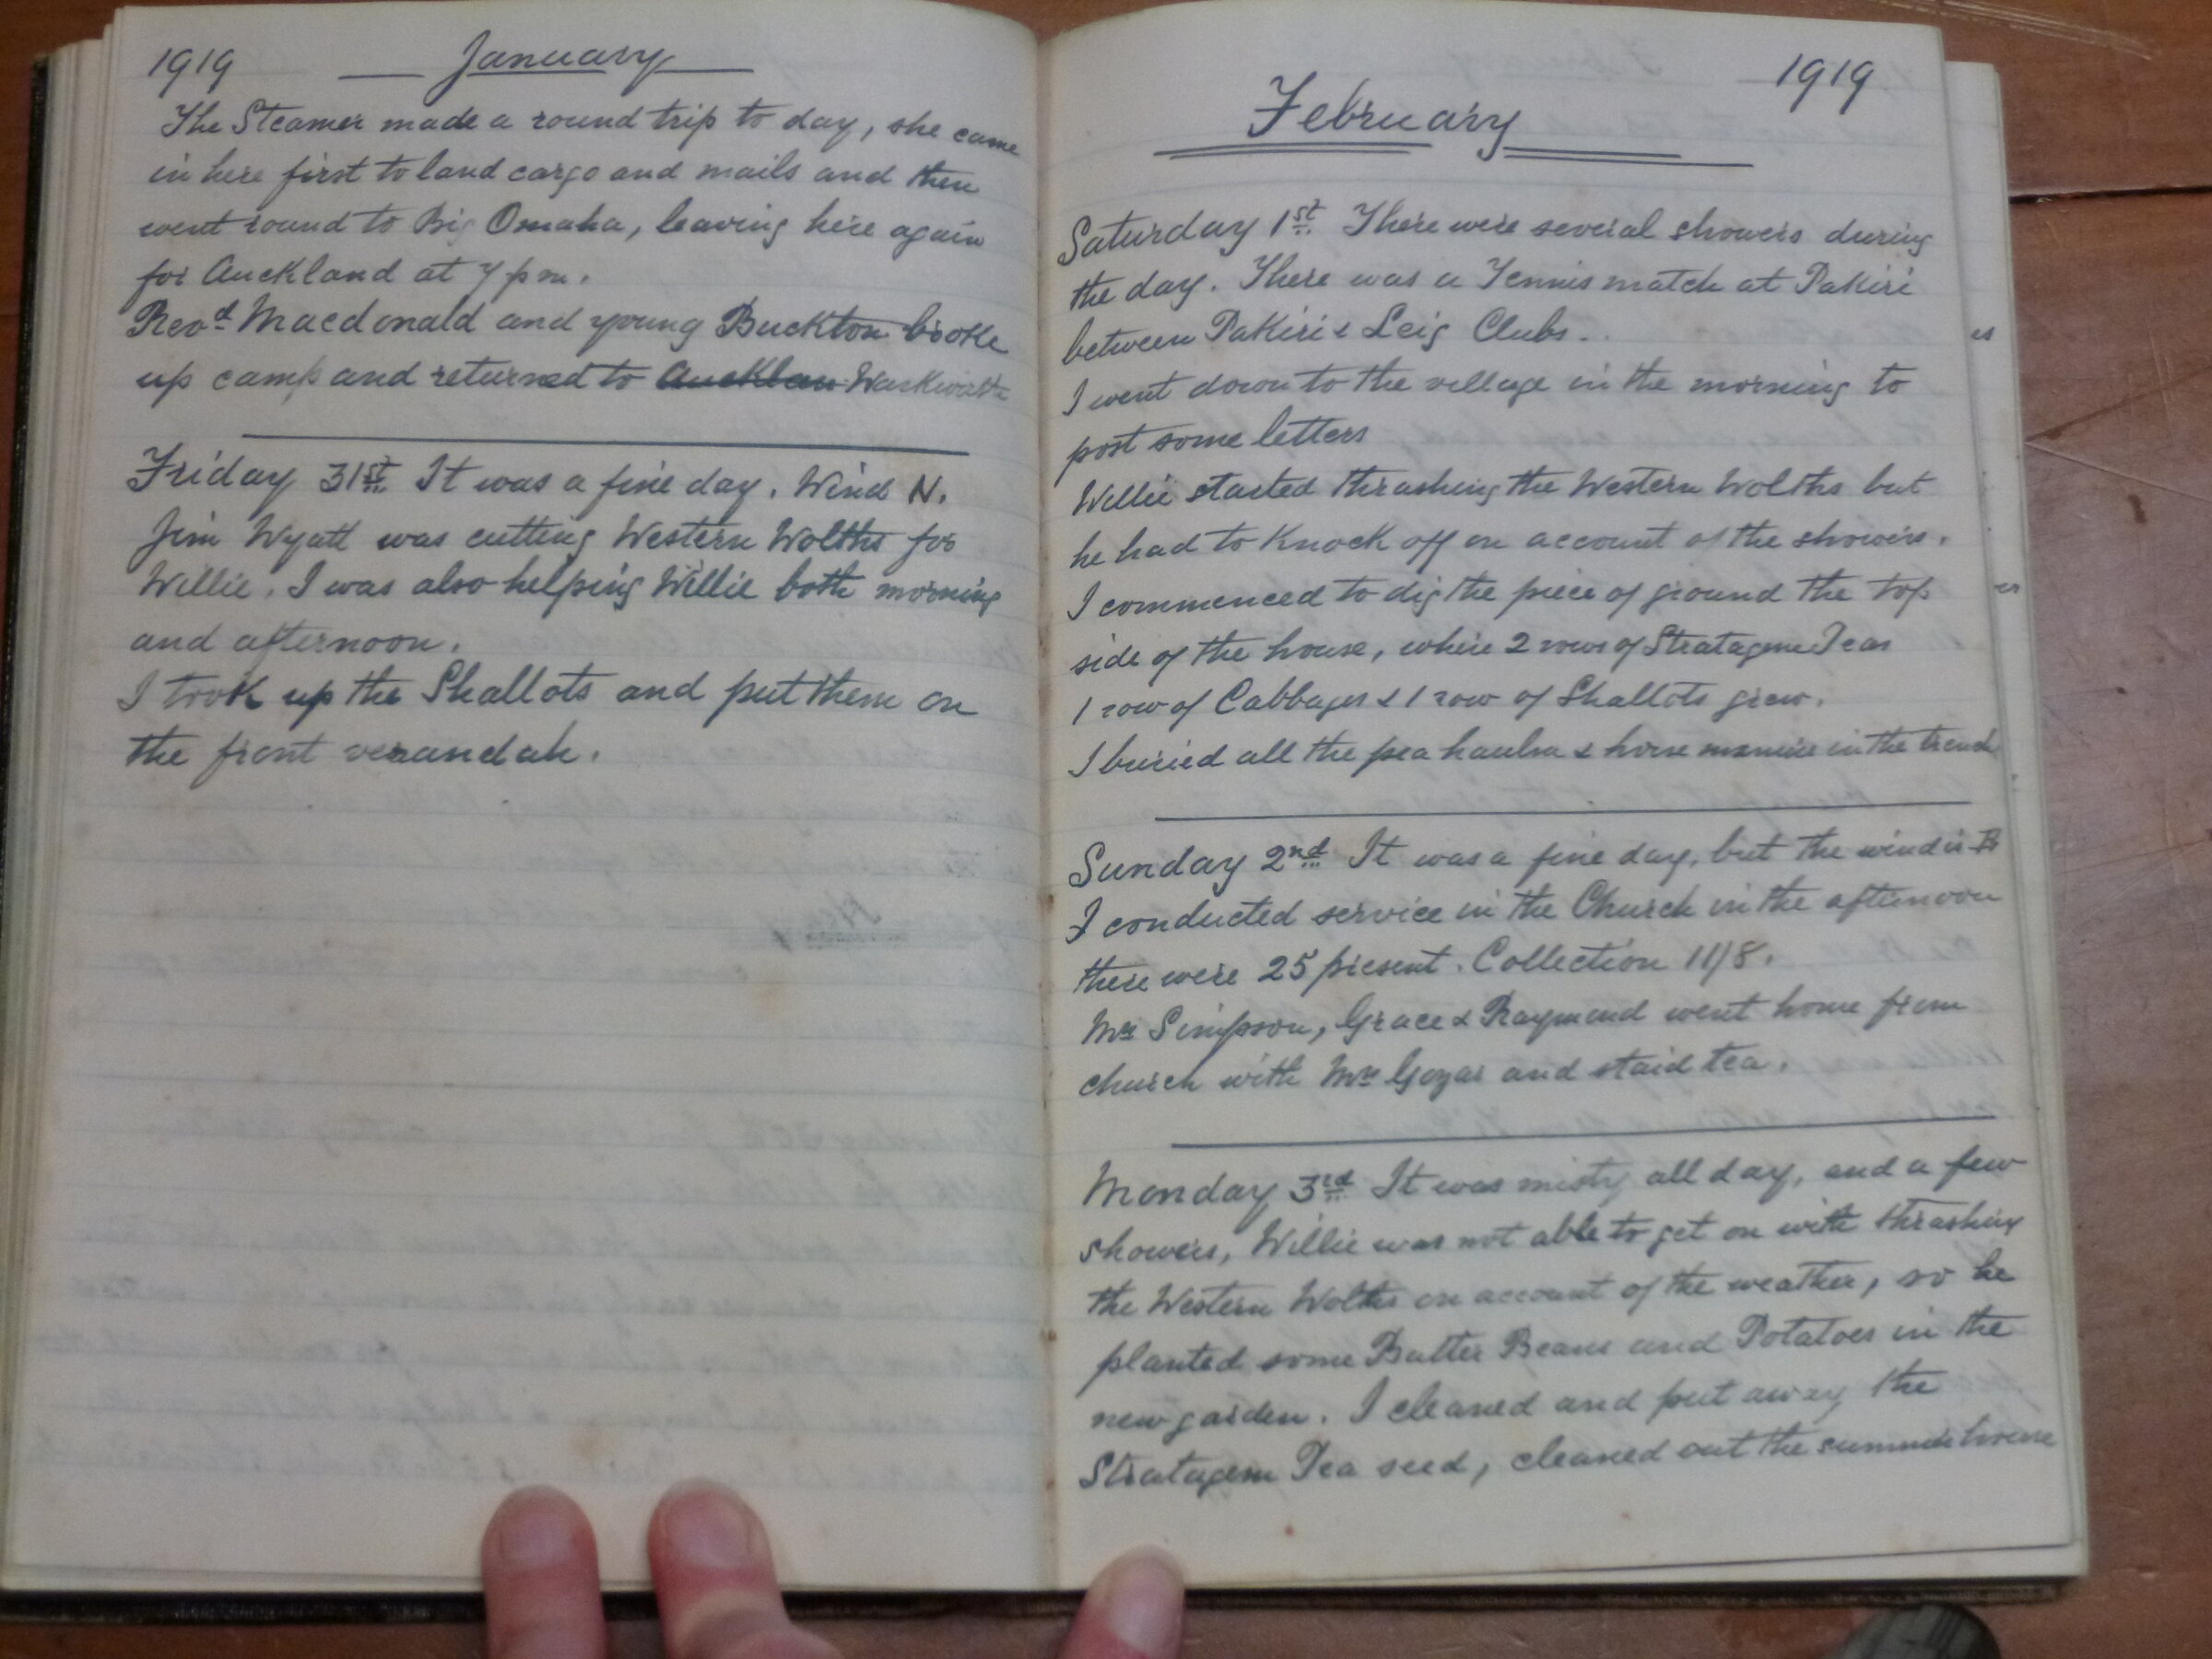 1919 January
The Steamer made a round trip to day, she came
in here first to land cargo and mails and then
went round to Big Omaha, leaving here again
for Auckland at 7 pm.
Revd Macdonald and young Buckton broke
up camp and returned to Aucklan Warkworth
Friday 31st It was a fine day. Wind N.
Jim Wyatt was cutting Western Wolths for
Willie. I was also helping Willie both morning
and afternoon.
I took up the Shallots and put them on
the front verandah.
1919
February
Saturday 1st There were several showers during
the day. There was a Tennis match at Pakiri
between Pakiri & Leig Clubs.
I went down to the village in the morning to
post some letters
Willie started thrashing the Western Wolths but
he had to Knock off on account of the showers.
I commenced to dig the piece of ground the top
side of the house, where 2 rows of Stratagem Peas
1 row of Cabbages & 1 row of Shallots grew.
I buried all the pea haulm & horse manure in the trench
Sunday 2nd It was a fine day, but the wind is
I conducted service in the Church in the afternoon
there were 25 present. Collection 11/8.
Mrs Simpson, Grace & Raymond went home from
church with Mrs Gozar and staid tea.
Monday 3rd It was misty all day, and a few
showers, Willie was not able to get on with thrashing
the Western Wolths on account of the weather, so he
planted some Butter Beans and Potatoes in the
new garden. I cleaned and put away the
Stratagem Pea seed, cleaned out the summer house